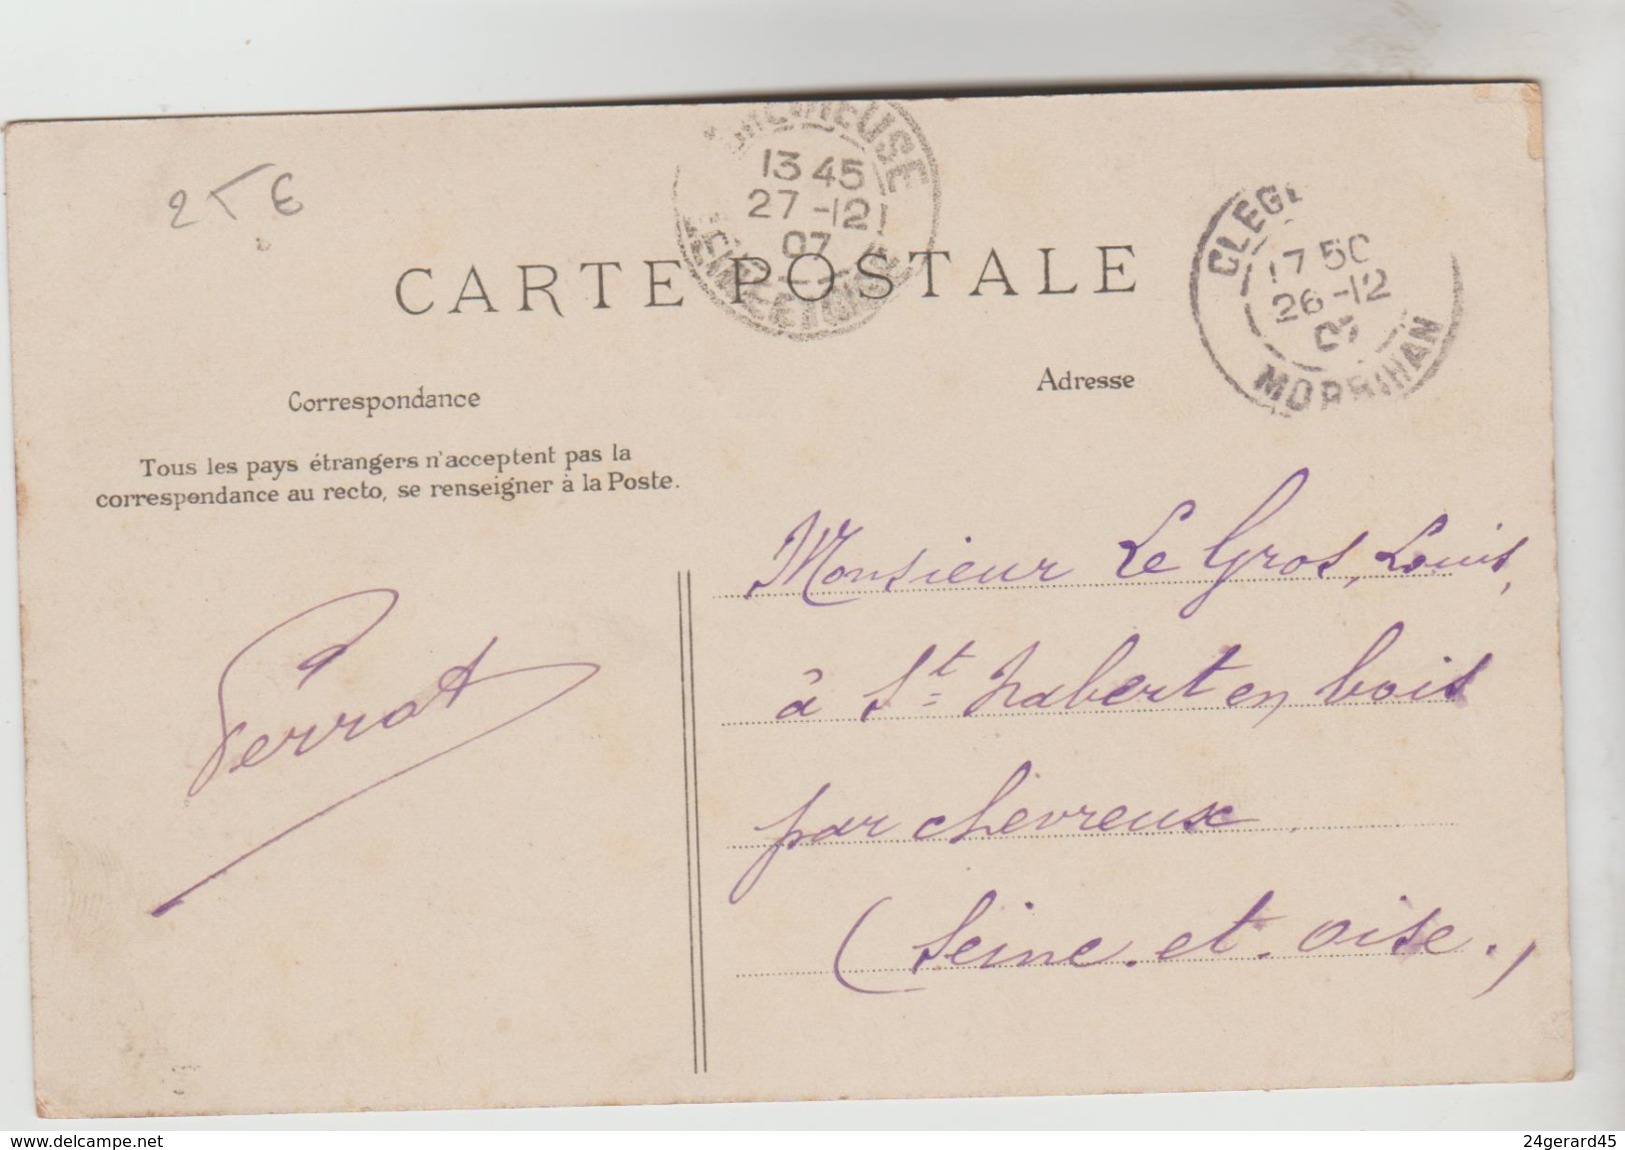 25 €
13 45
27-12
07
CLEG
17 50
26-12
07
MORBIHAN
CARTE POSTALE
Correspondance
Adresse
Tous les pays étrangers n'acceptent pas la
correspondance au recto, se renseigner à la Poste.
Monsieur Le Gros, Louis,
à St habert en bois
par chevreux
(Seine-et-oise.)
Perrot
www.delcampe.net
24gerard45